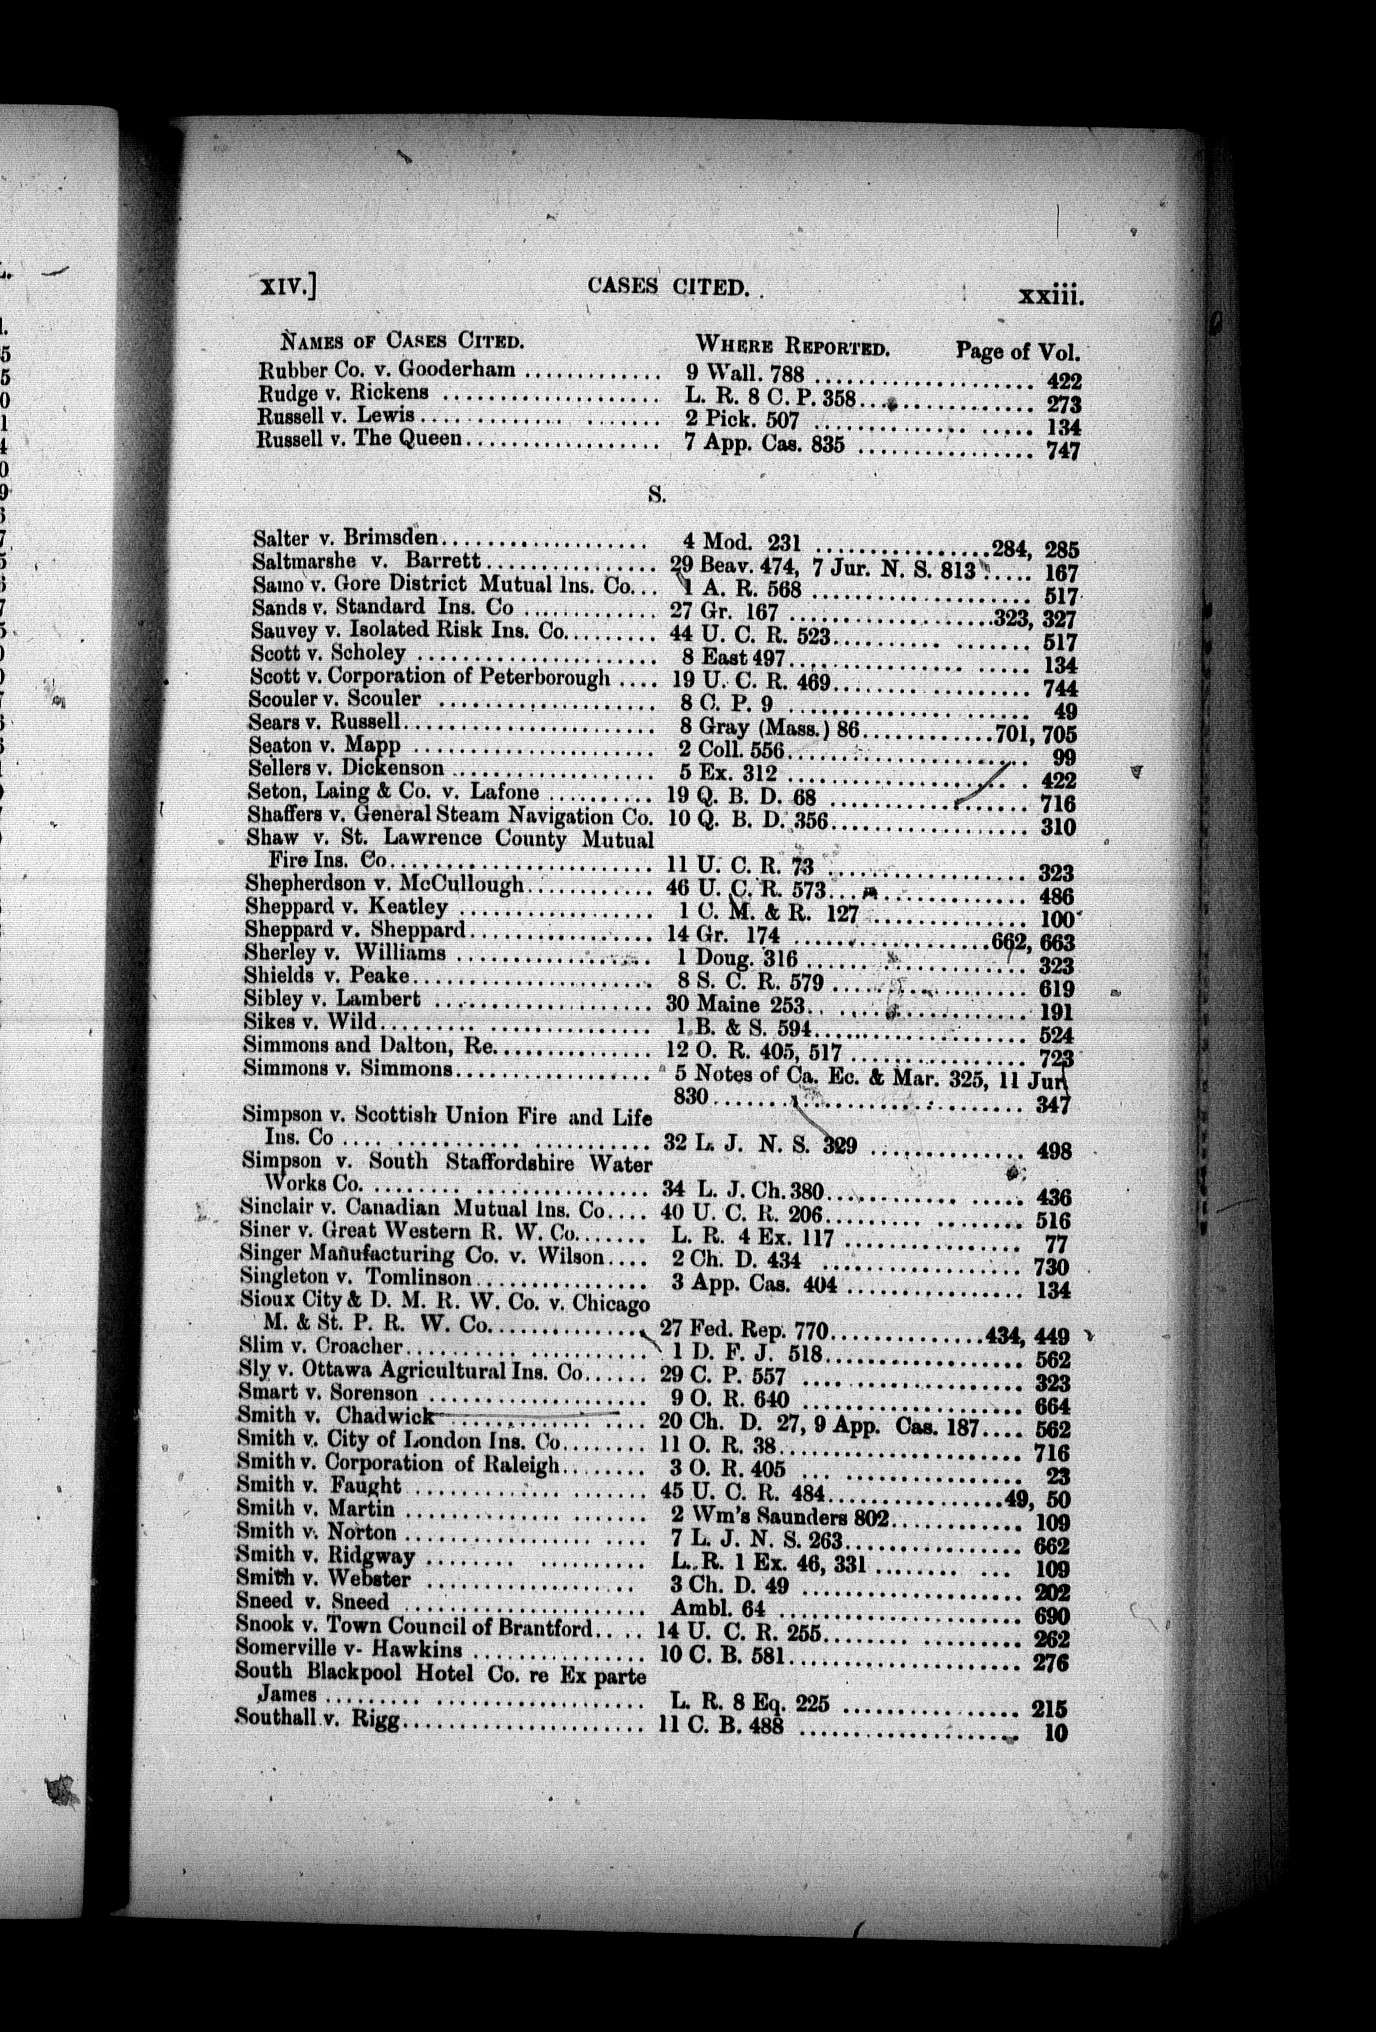 XIV.] CASES CITED. xxiii.
NAMES OF CASES CITED. WHERE REPORTED. Page of Vol.
Rubber Co. v. Gooderham ............. 9 Wall. 788 ...................... 422
Rudge v. Rickens ................... L. R. 8 C. P. 358................. 273
Russell v. Lewis..................... 2 Pick. 507 ...................... 134
Russell v. The Queen................. 7 App. Cas. 835 ................ 747
S.
Salter v. Brimsden................... 4 Mod. 231 ................284, 285
Saltmarshe v. Barrett................ 29 Beav. 474, 7 Jur. N. S. 813 ..... 167
Samo v. Gore District Mutual Ins. Co... 1 A. R. 568 .................... 517
Sands v. Standard Ins. Co ............. 27 Gr. 167 ..................323, 327
Sauvey v. Isolated Risk Ins. Co......... 44 U. C. R. 523................... 517
Scott v. Scholey ...................... 8 East 497...................... 134
Scott v. Corporation of Peterborough .... 19 U. C. R. 469.................. 744
Scouler v. Scouler .................... 8 C. P. 9 ....................... 49
Sears v. Russell...................... 8 Gray (Mass.) 86............701, 705
Seaton v. Mapp ...................... 2 Coll. 556....................... 99
Sellers v. Dickenson .................. 5 Ex. 312 ....................... 422
Seton, Laing & Co. v. Lafone .......... 19 Q. B. D. 68 .................. 716
Shaffers v. General Steam Navigation Co. 10 Q. B. D. 356.................. 310
Shaw v. St. Lawrence County Mutual
Fire Ins. Co....................... 11 U. C. R. 73 .................. 323
Shepherdson v. McCullough............ 46 U. C. R. 573................... 486
Sheppard v. Keatley .................. 1 C. M. & R. 127 .............. 100
Sheppard v. Sheppard................. 14 Gr. 174 ..................662, 663
Sherley v. Williams .................. 1 Doug. 316 .................... 323
Shields v. Peake...................... 8 S. C. R. 579 .................. 619
Sibley v. Lambert .................... 30 Maine 253.................... 191
Sikes v. Wild......................... 1 B. & S. 594.................... 524
Simmons and Dalton, Re............... 12 O. R. 405, 517 ................ 723
Simmons v. Simmons.................. 5 Notes of Ca. Ec. & Mar. 325, 11 Jur.
830............................ 347
Simpson v. Scottish Union Fire and Life
Ins. Co ............................ 32 L. J. N. S. 329 .............. 498
Simpson v. South Staffordshire Water
Works Co. ......................... 34 L. J. Ch. 380.................. 436
Sinclair v. Canadian Mutual Ins. Co.... 40 U. C. R. 206.................. 516
Siner v. Great Western R. W. Co....... L. R. 4 Ex. 117 ................ 77
Singer Manufacturing Co. v. Wilson.... 2 Ch. D. 434 .................. 730
Singleton v. Tomlinson................ 3 App. Cas. 404 ................ 134
Sioux City & D. M. R. W. Co. v. Chicago
M. & St. P. R. W. Co............... 27 Fed. Rep. 770..............434, 449
Slim v. Croacher...................... 1 D. F. J. 518.................. 562
Sly v. Ottawa Agricultural Ins. Co...... 29 C. P. 557 .................... 323
Smart v. Sorenson .................... 9 O. R. 640 .................... 664
Smith v. Chadwick .................... 20 Ch. D. 27, 9 App. Cas. 187.... 562
Smith v. City of London Ins. Co........ 11 O. R. 38...................... 716
Smith v. Corporation of Raleigh........ 3 O. R. 405 .................... 23
Smith v. Faught ...................... 45 U. C. R. 484................49, 50
Smith v. Martin ...................... 2 Wm's Saunders 802............ 109
Smith v. Norton ...................... 7 L. J. N. S. 263................ 662
Smith v. Ridgway .................... L. R. 1 Ex. 46, 331 ............ 109
Smith v. Webster .................... 3 Ch. D. 49 .................... 202
Sneed v. Sneed ...................... Ambl. 64 ...................... 690
Snook v. Town Council of Brantford.... 14 U. C. R. 255.................. 262
Somerville v- Hawkins ................ 10 C. B. 581...................... 276
South Blackpool Hotel Co. re Ex parte
James ............................ L. R. 8 Eq. 225 ................ 215
Southall v. Rigg...................... 11 C. B. 488 .................... 10